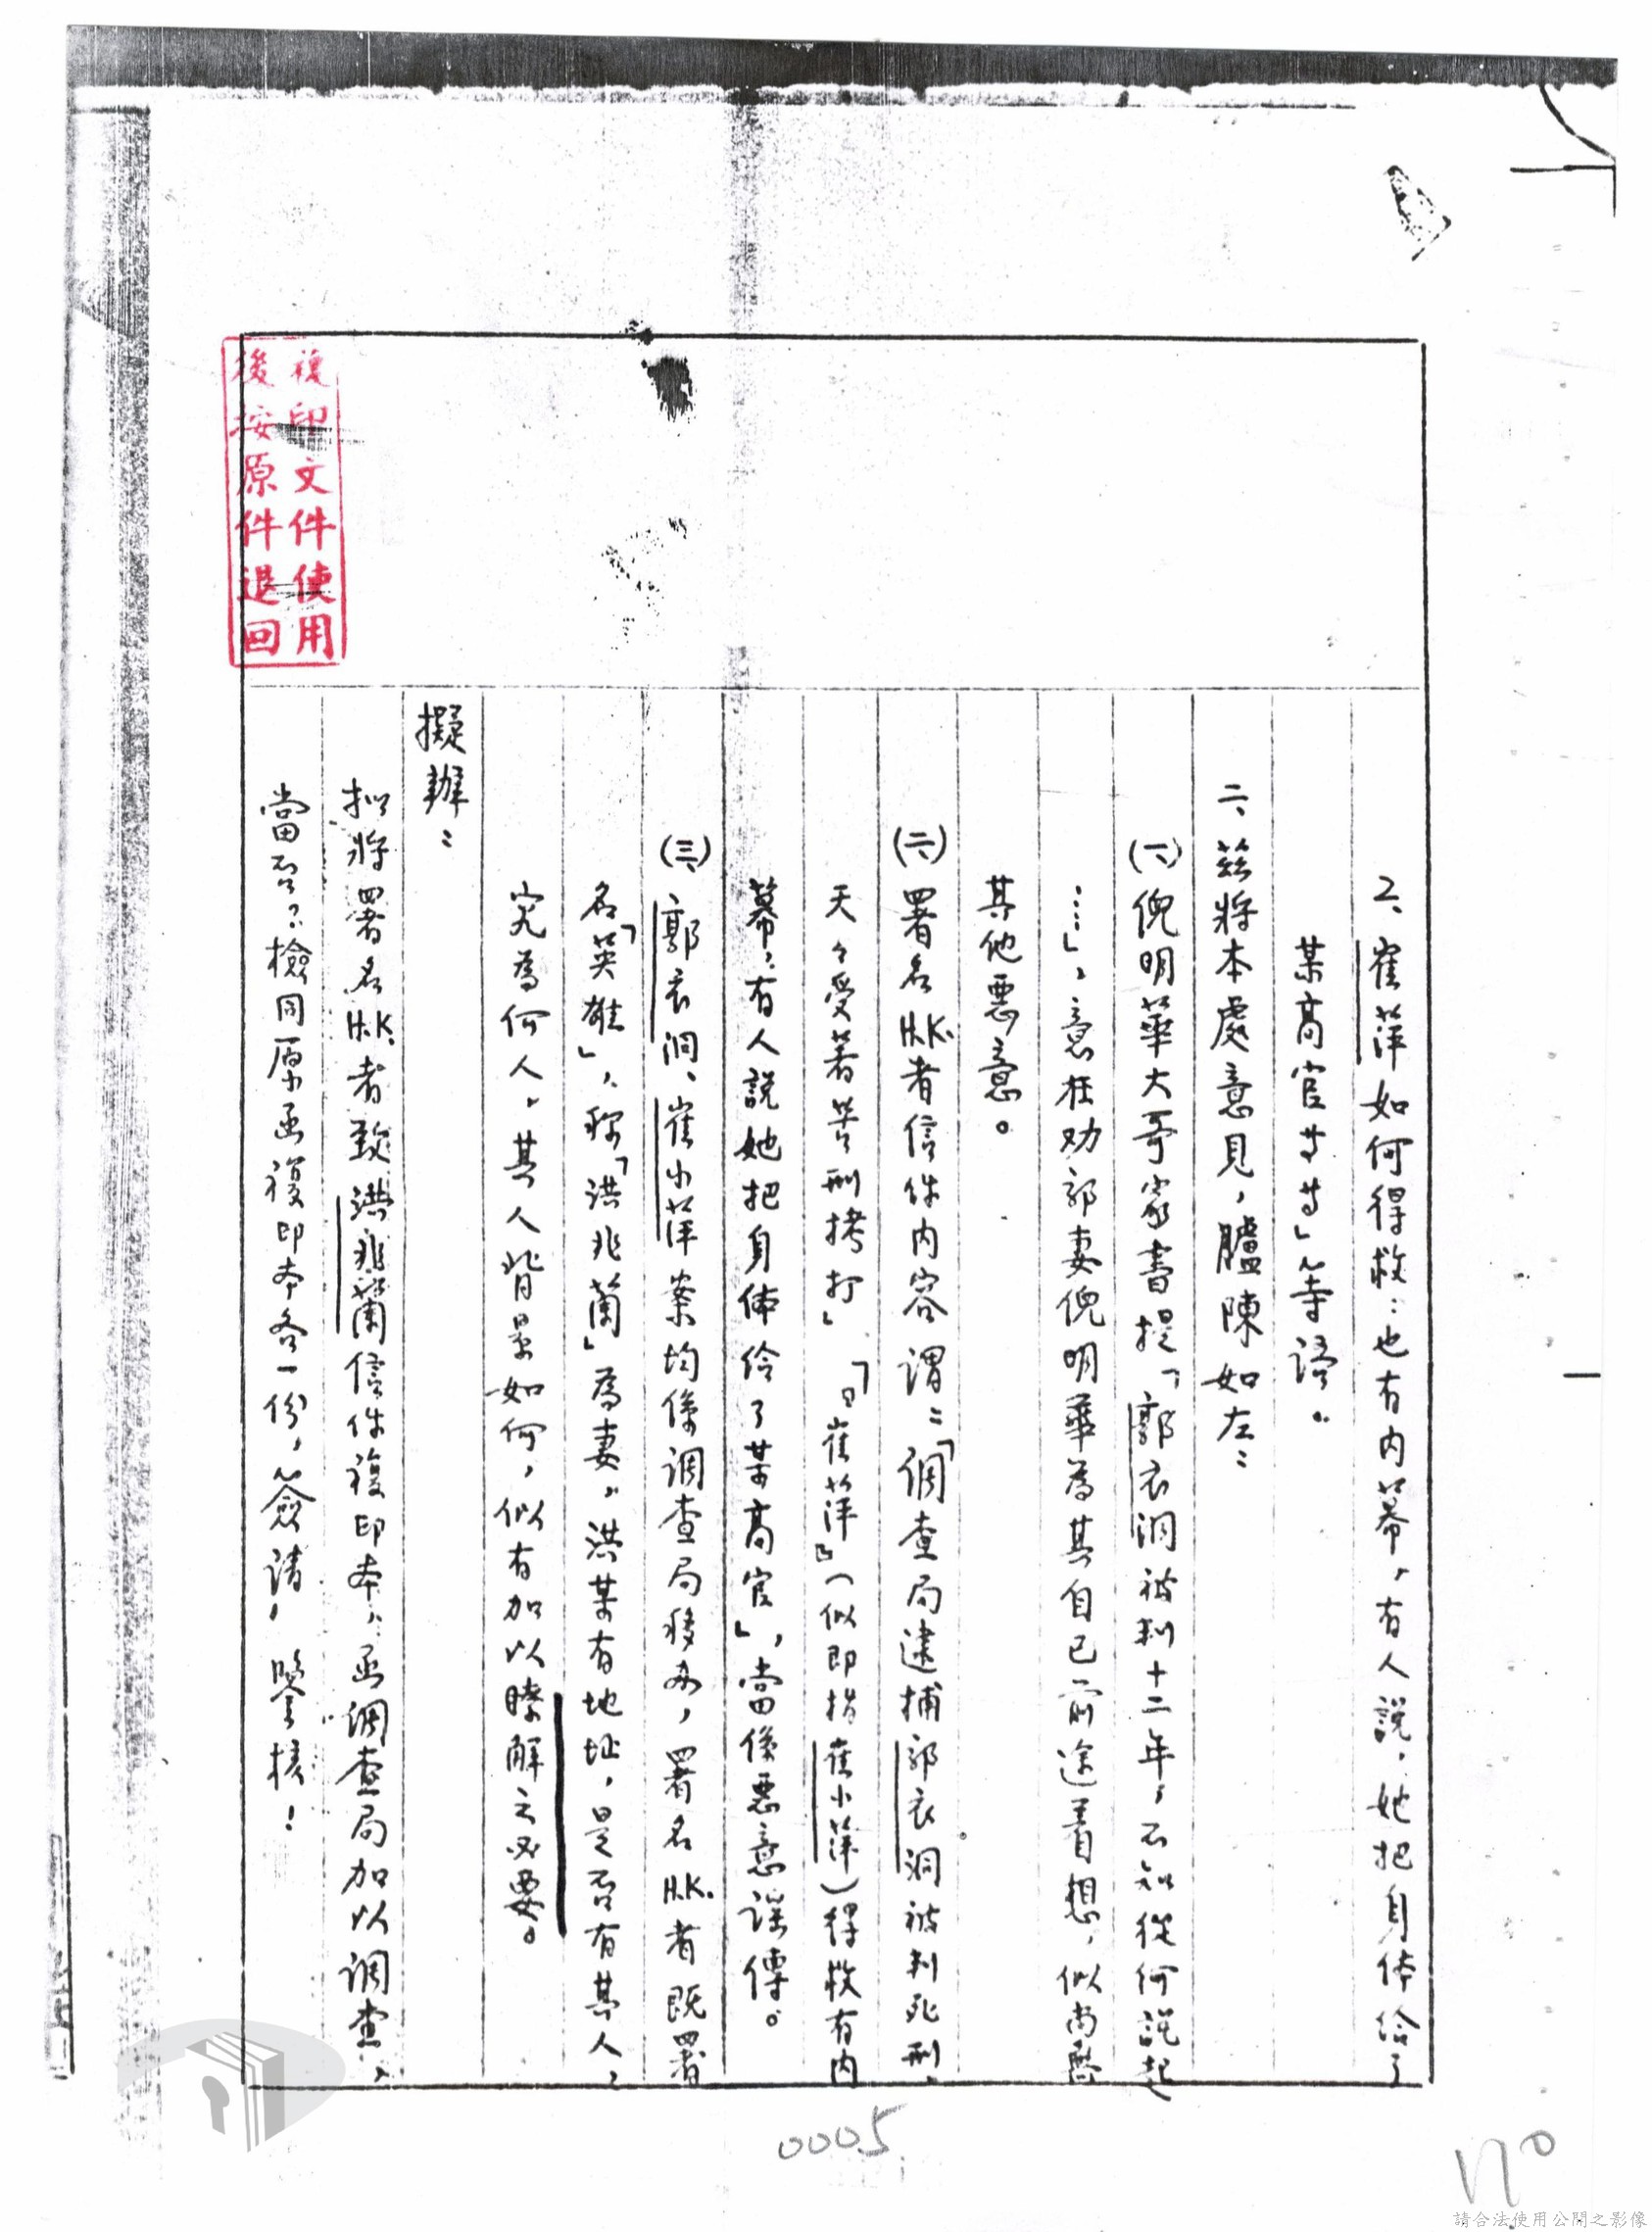 2、崔萍如何得救：也有內幕，有人說，她把身体给了
某高官艹艹」等語。
二、茲將本處意見，臚陳如左：
(一)倪明華大哥家書提「郭衣洞被判十二年，不知從何說起
……」，意在劝郭妻倪明華為其自己前途着想，似尚無
其他惡意。
(二)署名H.K.者信件內容謂：「調查局逮捕郭衣洞被判死刑、
天々受著苦刑拷打」「『崔萍』（似即指崔小萍）得救有內
幕，有人說她把身体给了某高官」，當係惡意謠傳。
(三)郭衣洞、崔小萍案均係調查局移办，署名H.K.者既署
名「英雄」，称「洪兆蘭」為妻，洪某有地址，是否有其人，
究為何人，其人背景如何，似有加以瞭解之必要。
擬辦：
拟將署名H.K.者致洪兆蘭信件複印本，函調查局加以調查，
當否？檢同原函複印本各一份，簽請，鑒核！
複印文件使用
後按原件退回
0005
請合法使用公開之影像